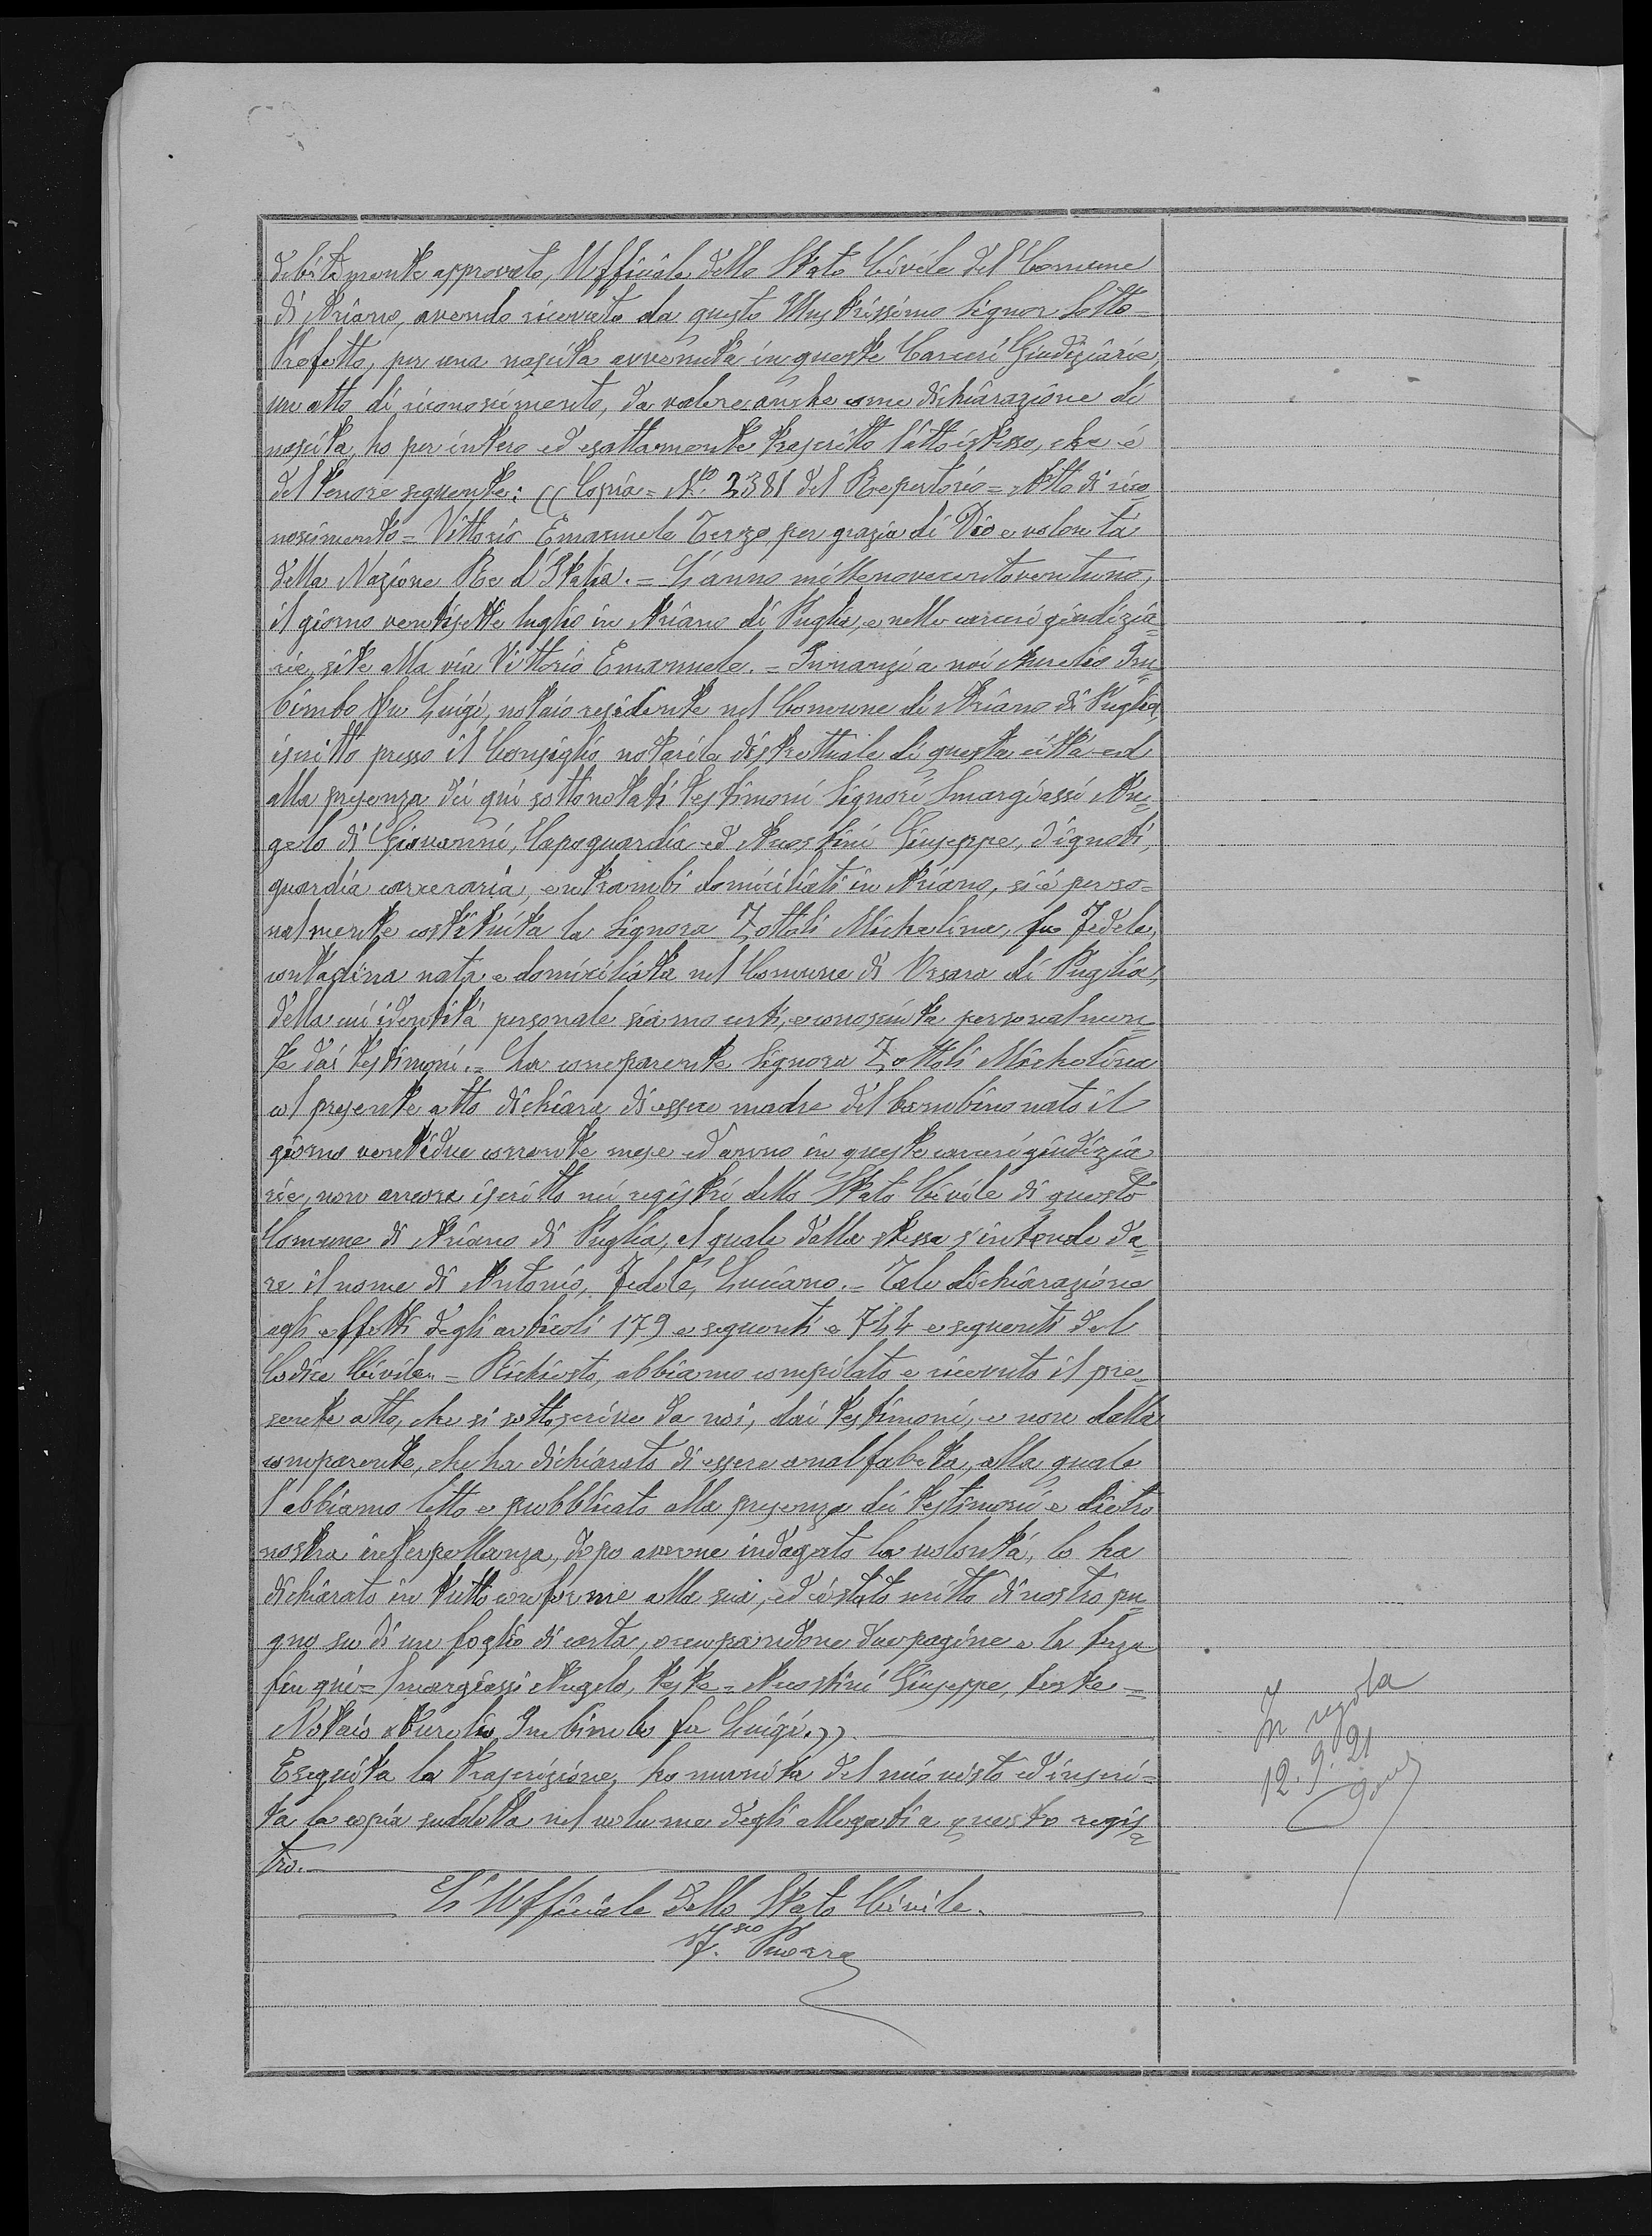 debitamente approvato, Ufficiale dello Stato Civile del Comune
di Ariano, avendo ricevuto da questo Illustrissimo Signor Sotto-
Prefetto, per una nascita avvenuta in queste Carceri Giudiziarie,
un atto di riconoscimento, da valere anche come dichiarazione di
nascita, ho per intero ed esattamente trascritto l'atto istesso, che è
del tenore seguente: (( Copia = No. 2381 del Repertorio = Atto di rico=
noscimento = Vittorio Emanuele Terzo, per grazia di Dio e volontà
della Nazione Re d'Italia. = L'anno millenovecentoventuno,
il giorno ventisette luglio in Ariano di Puglia, e nelle carceri giudizia=
rie, site alla via Vittorio Emanuele. = Innanzi a noi Aurelio Im=
bimbo fu Luigi, notaio residente nel Comune di Ariano di Puglia,
iscritto presso il Consiglio notarile distrettuale di questa città ed
alla presenza dei qui sottonotati testimoni Signori Smargiassi An=
gelo di Giovanni, Capoguardia ed Agostini Giuseppe, d'ignoti,
guardia carceraria, entrambi domiciliati in Ariano, si è perso=
nalmente costituita la Signora Zottoli Michelina, fu Fedele,
contadina nata e domiciliata nel Comune di Orsara di Puglia,
della cui identità personale siamo certi, e conosciuta personalmen=
te dai testimoni. = La comparente Signora Zottoli Michelina
col presente atto dichiara di essere madre del bambino nato il
giorno ventidue corrente mese ed anno in queste carceri giudizia
rie, non ancora iscritto nei registri dello Stato Civile di questo
Comune di Ariano di Puglia, al quale dalla stessa s'intende da=
re il nome di Antonio, Fedele, Luciano. = Tale dichiarazione
agli effetti degli articoli 179 e seguenti e 744 e seguenti del
Codice Civile. = Richiesto, abbiamo compilato e ricevuto il pre=
sente atto, che si sottoscrive da noi, dai testimoni, e non dalla
comparente, che ha dichiarato di essere analfabeta, alla quale
l'abbiamo letto e pubblicato alla presenza dei testimoni e dietro
nostra interpellanza, dopo averne indagato la volontà, lo ha
dichiarato in tutto conforme alla sua, ed è stato scritto di nostro pu=
gno su di un foglio di carta, occupandone due pagine e la terza
fin qui = Smargiassi Angelo, teste = Agostini Giuseppe, teste =
Notaio Aurelio Imbimbo fu Luigi. ))
Eseguita la trascrizione, ho munita del mio visto ed inseri=
ta la copia suddetta nel volume degli allegati a questo regis=
tro.
L'Ufficiale dello Stato Civile.
In regola
12.9.21